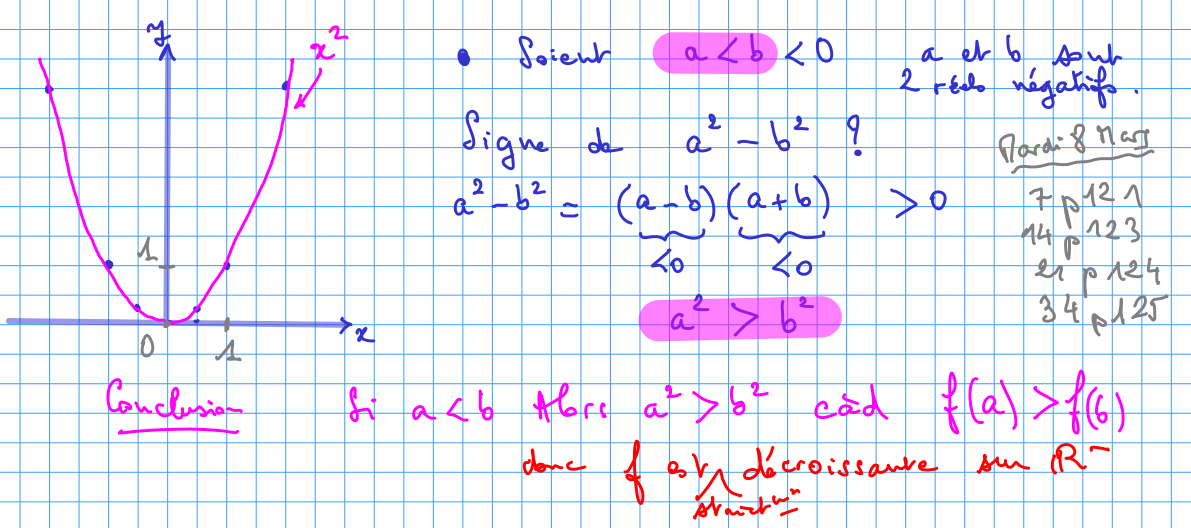 y
x²
1
0
1
x
• Soient a < b < 0
a et b sont
2 réels négatifs.
Signe de a² - b² ?
a² - b² = (a - b)(a + b) > 0
<0 <0
a² > b²
Mardi 8 Mars
7 p 121
14 p 123
21 p 124
34 p 125
Conclusion Si a < b Alors a² > b² càd f(a) > f(b)
donc f est décroissante sur ℝ⁻
strict^nt